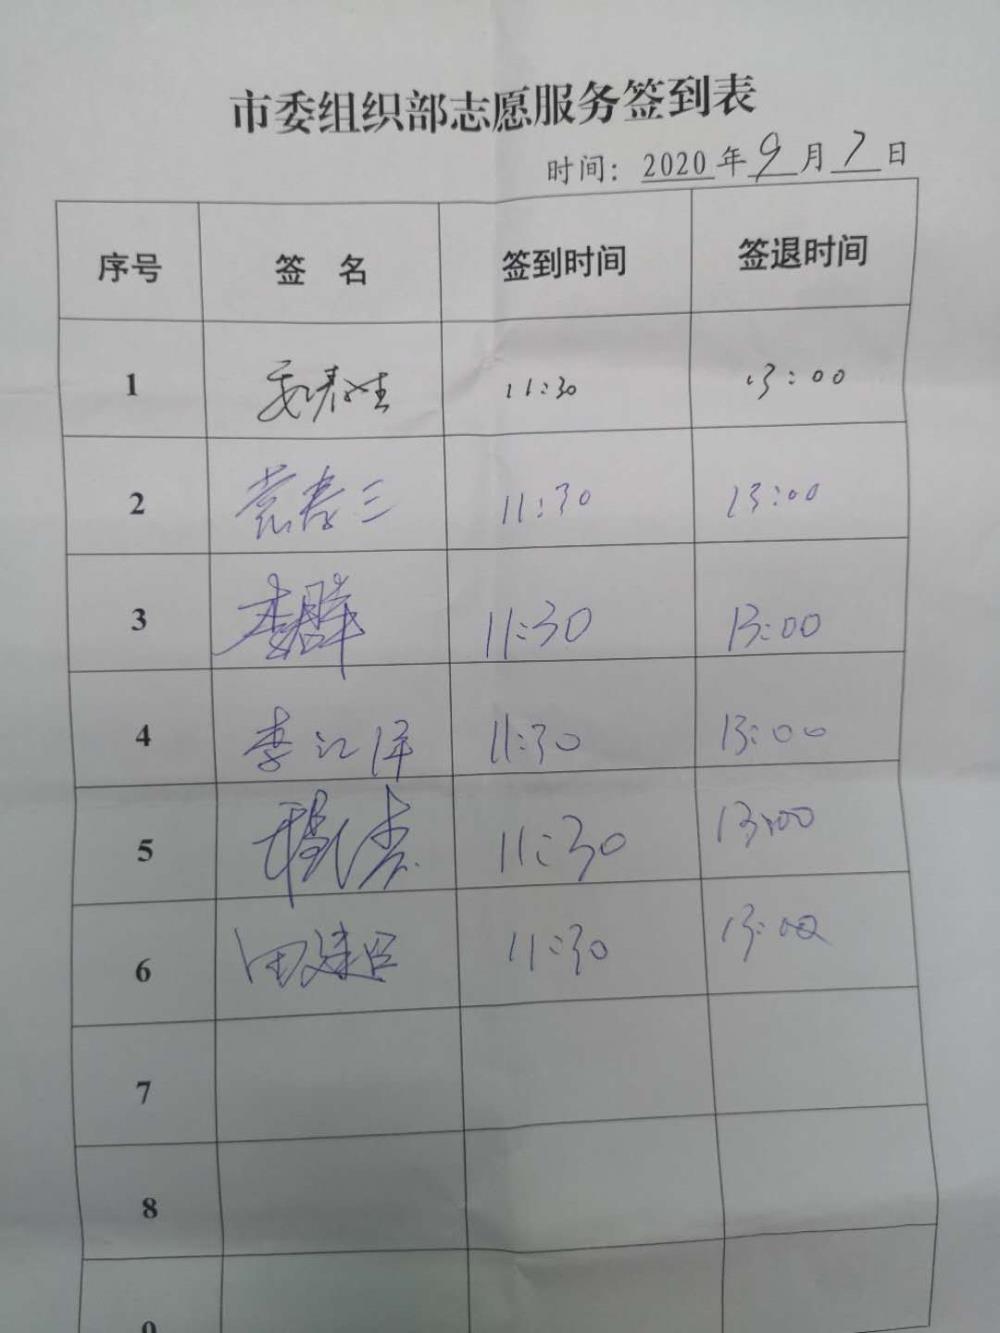 市委组织部志愿服务签到表
时间：2020年9月7日
序号 签 名 签到时间 签退时间
1 11:30 13:00
2 袁春三 11:30 13:00
3 11:30 13:00
4 李江洋 11:30 13:00
5 11:30 13:00
6 田建臣 11:30 13:00
7
8
9